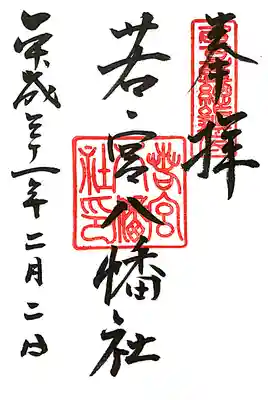 奉拝
若宮八幡社
平成三十一年二月二日
若宮八幡社印